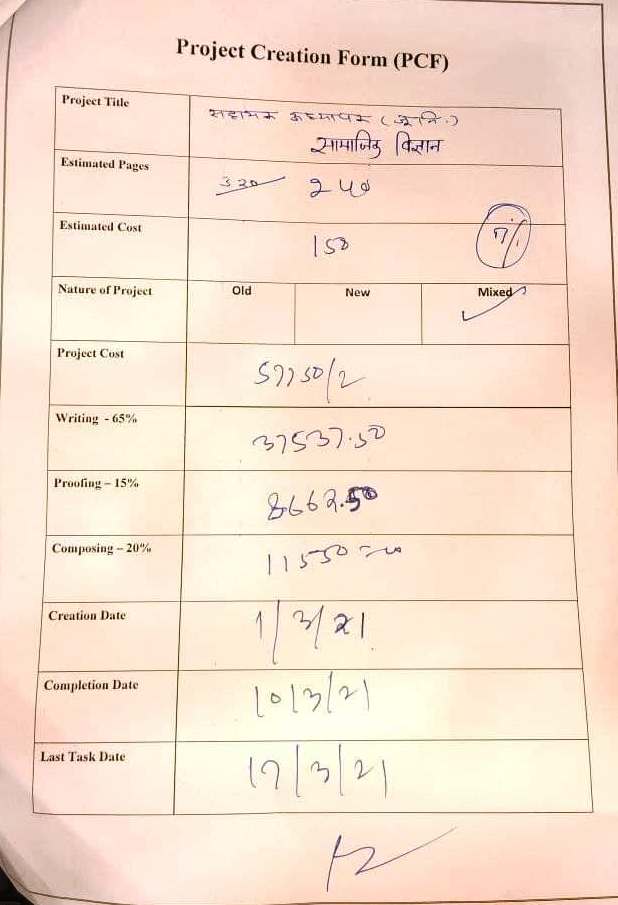 Project Creation Form (PCF)
Project Title
सहायक अध्यापक (जू.नि.)
सामाजिक विज्ञान
Estimated Pages
320 240
Estimated Cost
150
Nature of Project Old New Mixed
Project Cost
57750/2
Writing - 65%
37537.50
Proofing – 15%
8662.50
Composing – 20%
11550
Creation Date
1/3/21
Completion Date
10/3/21
Last Task Date
17/3/21